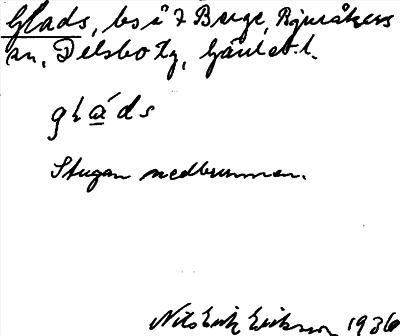 Glads, bs i 7 Berge, Bjuråkers
sn, Delsbo tg, Gävleb. l.
glåds
Stugan nedbrunnen.
Nils Erik Eriksson 1936